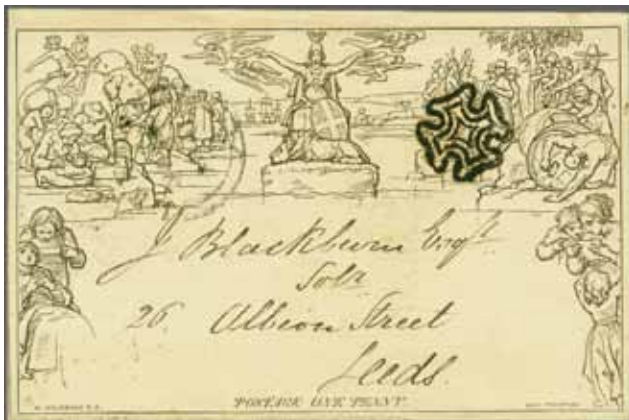 J Blackburn Esqr.
Solr
26 Albion Street
Leeds.
POSTAGE ONE PENNY.
W. MULREADY R.A.